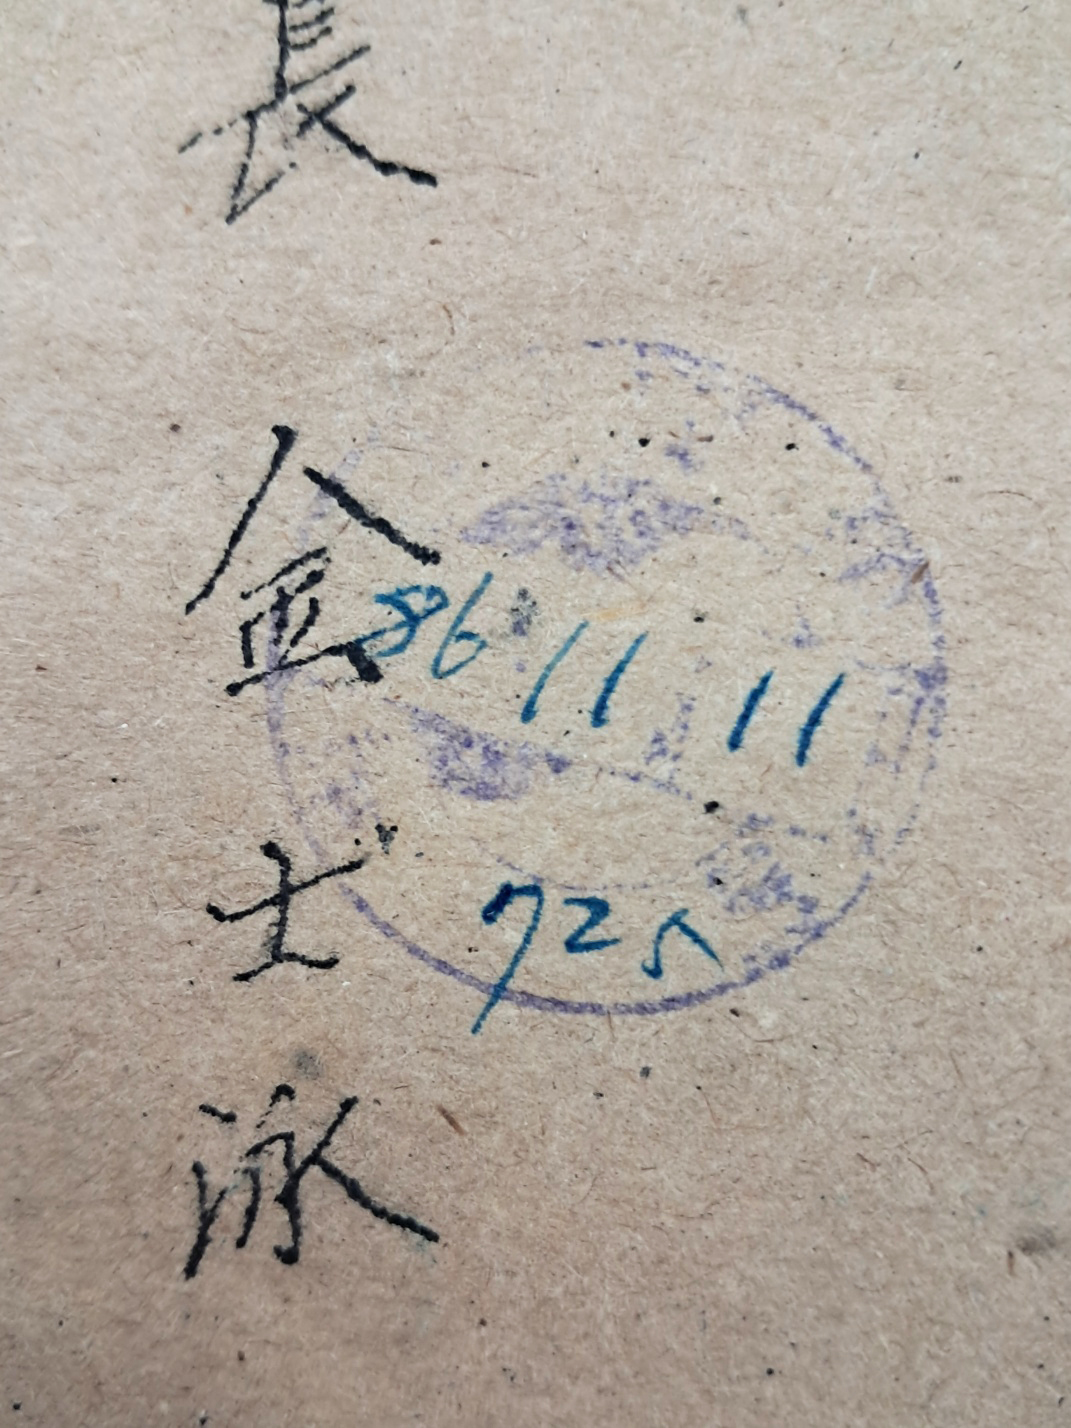 長
金士泳
86 11 11
725